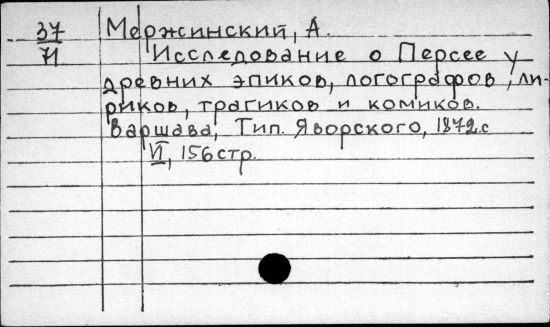 37
71
Мержинский, А.
Исследование о Персее у
древних эпиков, логографов, ли-
риков, трагиков и комиков.
Варшава, Тип. Яворского, 1872.с
VI, 156 стр.